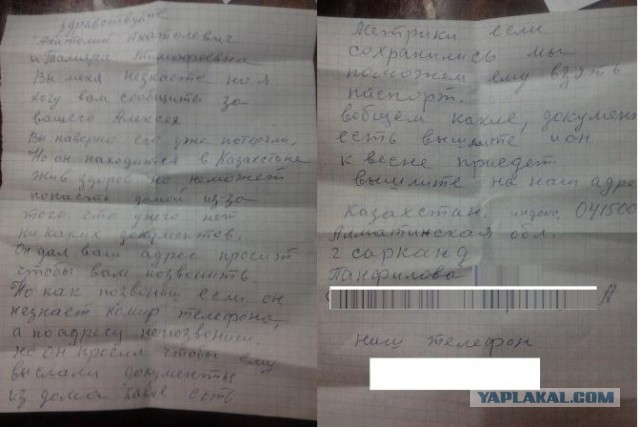 здравствуйте
Анатолий Анатолович
и Тамара Тимофеевна
Вы меня незнаете но я
хочу вам сообщить за
вашего Алексея
Вы наверно его уже потеряли,
Но он находится в Казахстане
жив здоров но неможет
попасть домой из-за
того что унего нет
ни каких документов.
Он дал ваш адрес просит
чтобы вам позвонить
Но как позвониш если он
незнает номир телефона,
а по адресу непозвониш.
но он просил чтобы ему
выслали документы
из дома какие есть
Метрики если
сохранились мы
поможем ему взять
паспорт.
вобщем какие, документ
есть вышлите и он
к весне приедет
вышлите на наш адре
Казахстан. индекс 041500
Алматинская обл.
г Сарканд
Панфилова
наш телефон
YAPLAKAL.COM